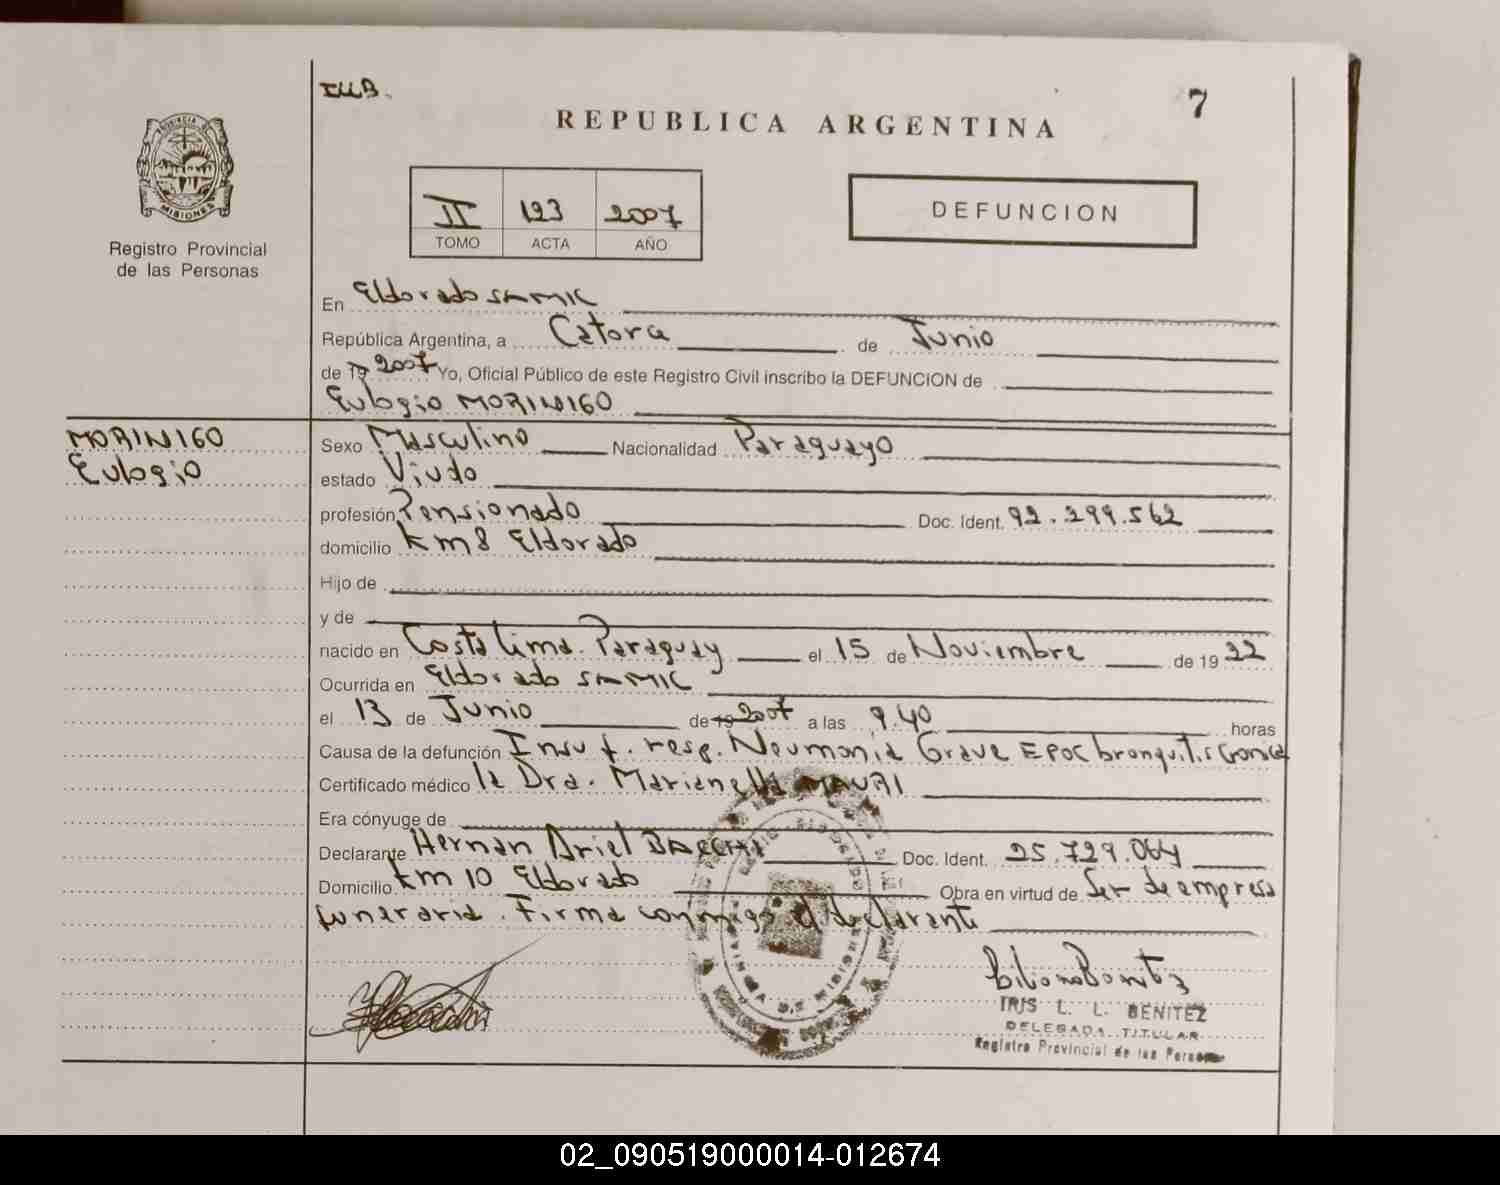 I.LL.B.
7
REPUBLICA ARGENTINA
PROVINCIA DE
MISIONES
Registro Provincial
de las Personas
II 123 2007
TOMO ACTA AÑO
DEFUNCION
En Eldorado SAMIC
República Argentina, a Catorce de Junio
de 19 2007 Yo, Oficial Público de este Registro Civil inscribo la DEFUNCION de
Eulogio MORINIGO
MORINIGO
Eulogio
Sexo Masculino Nacionalidad Paraguayo
estado Viudo
profesión Pensionado Doc. Ident. 92.299.562
domicilio Km 8 Eldorado
Hijo de
y de
nacido en Costa Lima. Paraguay el 15 de Noviembre de 19 22
Ocurrida en Eldorado SAMIC
el 13 de Junio de 19 2007 a las 9.40 horas
Causa de la defunción Insuf. resp. Neumonia Grave EPOC bronquitis Cronica
Certificado médico la Dra. Marianella MAURI
Era cónyuge de
Declarante Hernan Ariel Doc. Ident. 25.729.064
Domicilio Km 10 Eldorado Obra en virtud de Ser de empresa
funeraria. Firma conmigo el declarante
IRIS L. L. BENITEZ
DELEGADA TITULAR
Registro Provincial de las Personas
02_090519000014-012674